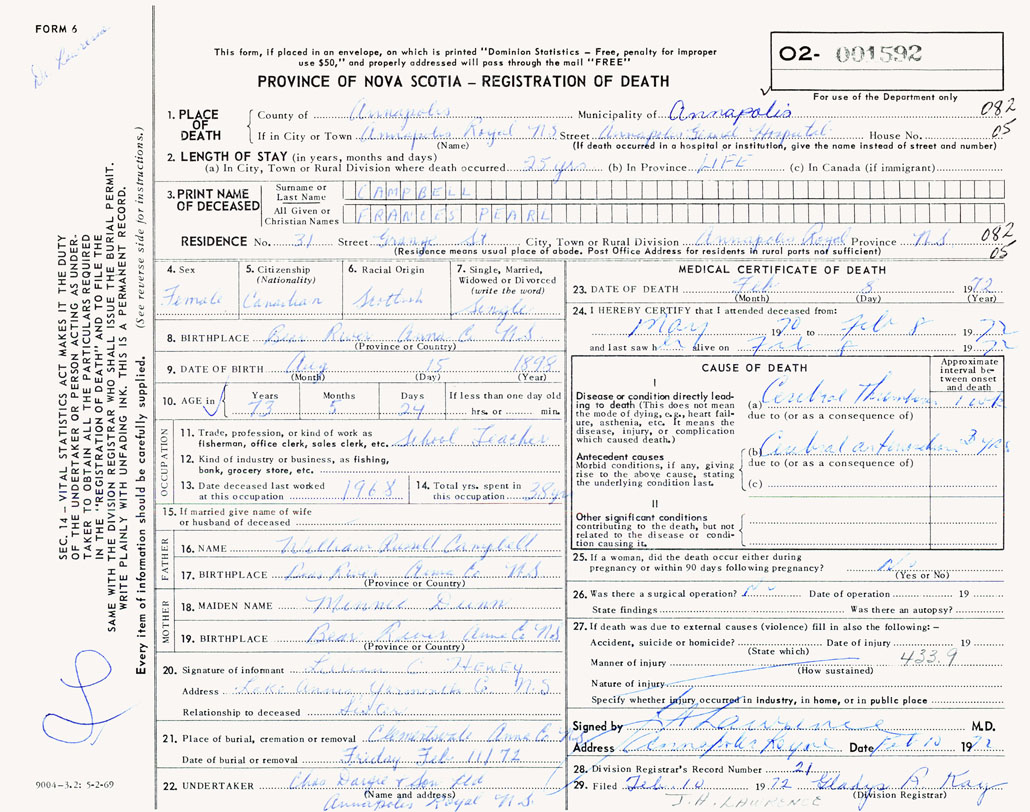 FORM 6
Dr. Lawrence
This form, if placed in an envelope, on which is printed "Dominion Statistics – Free, penalty for improper
use $50," and properly addressed will pass through the mail "FREE"
PROVINCE OF NOVA SCOTIA – REGISTRATION OF DEATH
02- 001592
For use of the Department only
1. PLACE OF DEATH
County of Annapolis Municipality of Annapolis 082
If in City or Town Annapolis Royal N S Street Annapolis General Hospital House No. 05
(Name) (If death occurred in a hospital or institution, give the name instead of street and number)
2. LENGTH OF STAY (in years, months and days)
(a) In City, Town or Rural Division where death occurred 25 yrs (b) In Province LIFE (c) In Canada (if immigrant)
3. PRINT NAME OF DECEASED
Surname or Last Name CAMPBELL
All Given or Christian Names FRANCES PEARL
RESIDENCE No. 31 Street Grange St City, Town or Rural Division Annapolis Royal Province N S 082
(Residence means usual place of abode. Post Office Address for residents in rural parts not sufficient) 05
4. Sex Female
5. Citizenship (Nationality) Canadian
6. Racial Origin Scottish
7. Single, Married, Widowed or Divorced (write the word) Single
8. BIRTHPLACE Bear River Anna Co N S
(Province or Country)
9. DATE OF BIRTH Aug 15 1898
(Month) (Day) (Year)
10. AGE in Years Months Days If less than one day old
73 5 24 hrs. or min.
OCCUPATION
11. Trade, profession, or kind of work as fishermen, office clerk, sales clerk, etc. School Teacher
12. Kind of industry or business, as fishing, bank, grocery store, etc.
13. Date deceased last worked at this occupation 1968
14. Total yrs. spent in this occupation 38 yrs
15. If married give name of wife or husband of deceased
FATHER
16. NAME William Russell Campbell
17. BIRTHPLACE Bear River Anna Co N S
(Province or Country)
MOTHER
18. MAIDEN NAME Minnie Dunn
19. BIRTHPLACE Bear River Anna Co N S
(Province or Country)
20. Signature of informant C
Address Lake Annis Yarmouth Co N S
Relationship to deceased Sister
21. Place of burial, cremation or removal Clementsvale Anna Co N S
Date of burial or removal Friday Feb 11/72
22. UNDERTAKER Chas Dargie & Son Ltd
(Name and address)
Annapolis Royal N S
MEDICAL CERTIFICATE OF DEATH
23. DATE OF DEATH Feb 8 1972
(Month) (Day) (Year)
24. I HEREBY CERTIFY that I attended deceased from:
May 1970 to Feb 8 1972
and last saw her alive on Feb 8 1972
CAUSE OF DEATH
Approximate interval between onset and death
I
Disease or condition directly leading to death (This does not mean the mode of dying, e.g., heart failure, asthenia, etc. It means the disease, injury, or complication which caused death.)
(a) Cerebral Thrombosis 1 wk
due to (or as a consequence of)
Antecedent causes
Morbid conditions, if any, giving rise to the above cause, stating the underlying condition last.
(b) Cerebral 3 yrs
due to (or as a consequence of)
(c)
II
Other significant conditions
contributing to the death, but not related to the disease or condition causing it.
25. If a woman, did the death occur either during
pregnancy or within 90 days following pregnancy? No
(Yes or No)
26. Was there a surgical operation? No Date of operation 19
State findings Was there an autopsy?
27. If death was due to external causes (violence) fill in also the following: –
Accident, suicide or homicide? Date of injury 19
(State which)
Manner of injury 433.9
(How sustained)
Nature of injury
Specify whether injury occurred in industry, in home, or in public place
Signed by Lawrence M.D.
Address Annapolis Royal Date Feb 10 1972
28. Division Registrar's Record Number 21
29. Filed Feb. 10 1972 Gladys R Kay
(Division Registrar)
J. H. LAWRENCE
SEC. 14 – VITAL STATISTICS ACT MAKES IT THE DUTY
OF THE UNDERTAKER OR PERSON ACTING AS UNDER-
TAKER TO OBTAIN ALL THE PARTICULARS REQUIRED
IN THE "REGISTRATION OF DEATH" AND TO FILE THE
SAME WITH THE DIVISION REGISTRAR WHO SHALL ISSUE THE BURIAL PERMIT.
WRITE PLAINLY WITH UNFADING INK. THIS IS A PERMANENT RECORD.
Every item of information should be carefully supplied. (See reverse side for instructions.)
9004-3.2: 5-2-69